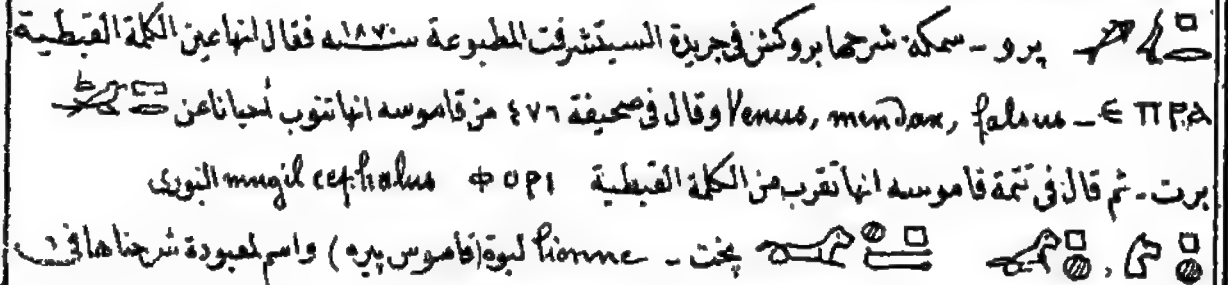 برو - سمكة شرحها بروكش فى جريدة السيتشرفت المطبوعة سنة ١٨٧٠ فقال انها عين الكلمة القبطية
ⲉⲡⲣⲁ - Venus, mendax, falsus وقال فى صحيفة ٤٧٦ من قاموسه انها تنوب أحيانا عن
برت - ثم قال فى تتمة قاموسه انها تقرب من الكلمة القبطية ⲫⲟⲣⲓ mugil cephalus النورى
پخت - lionne لبوة (قاموس پيره) واسم لمعبودة شرحناها فى